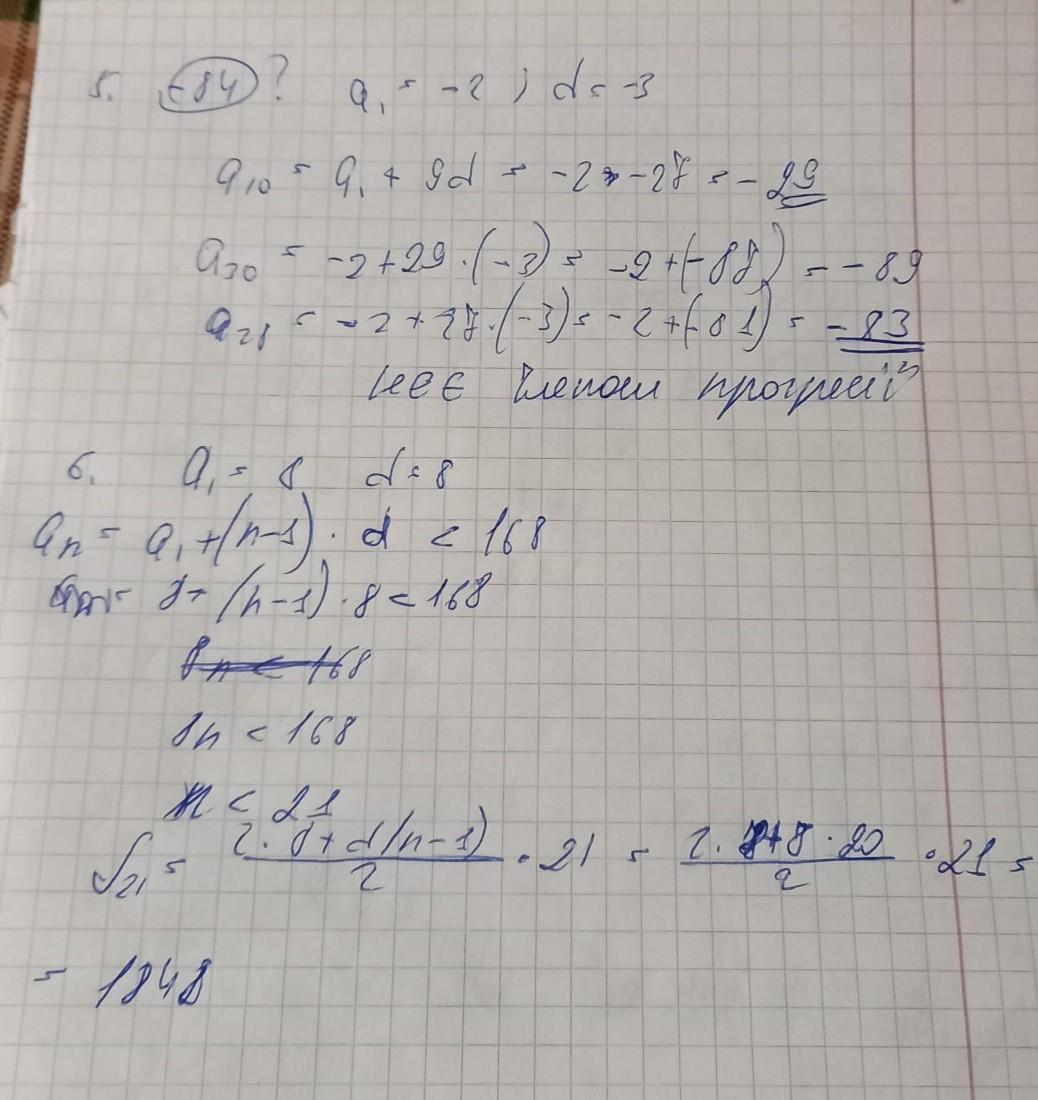 5. -84 ? a₁ = -2 ; d = -3
a₁₀ = a₁ + 9d = -2 + -27 = -29
a₃₀ = -2 + 29 · (-3) = -2 + (-87) = -89
a₂₈ = -2 + 27 · (-3) = -2 + (-81) = -83
не є членом прогресії
6. a₁ = 8 d = 8
aₙ = a₁ + (n-1) · d < 168
8 + (n-1) · 8 < 168
8n < 168
8n < 168
n < 21
S₂₁ = (2 · 8 + d(n-1))/2 · 21 = (2 · 8 + 8 · 20)/2 · 21 =
= 1848